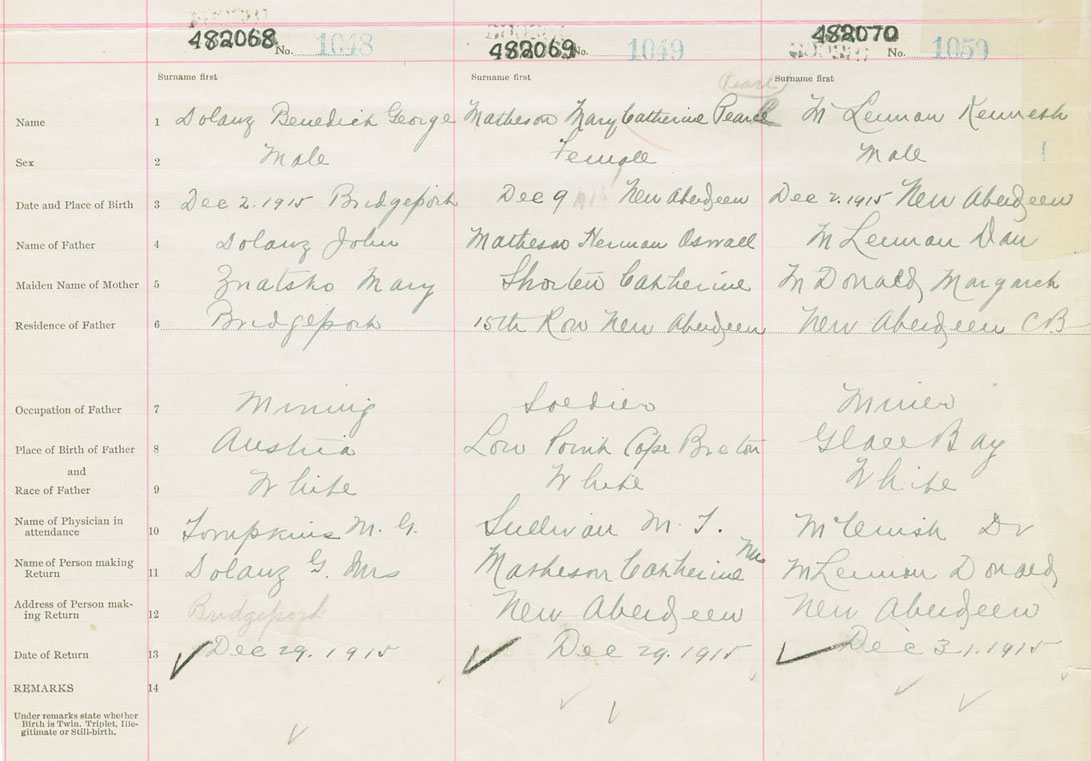 482068 No. 1048 482069 No. 1049 482070 No. 1050
Surname first Surname first Pearl Surname first
Name 1 Dolanz Benedict George Matheson Mary Catherine Pearl McLennan Kenneth
Sex 2 Male Female Male
Date and Place of Birth 3 Dec 2. 1915 Bridgeport Dec 9 1915 New Aberdeen Dec 2. 1915 New Aberdeen
Name of Father 4 Dolanz John Matheson Herman Oswald McLennan Dan
Maiden Name of Mother 5 Mary Shorten Catherine McDonald Margaret
Residence of Father 6 Bridgeport 15th Row New Aberdeen New Aberdeen CB
Occupation of Father 7 Mining Soldier Miner
Place of Birth of Father 8 Austria Low Point Cape Breton Glace Bay
and
Race of Father 9 White White White
Name of Physician in
attendance 10 Tompkins M. G. Sullivan M. T. Dr
Name of Person making
Return 11 Dolanz G. Mrs Matheson Catherine Mrs McLennan Donald
Address of Person mak-
ing Return 12 Bridgeport New Aberdeen New Aberdeen
Date of Return 13 Dec 29. 1915 Dec 29. 1915 Dec 31. 1915
REMARKS 14
Under remarks state whether
Birth is Twin, Triplet, Ille-
gitimate or Still-birth.